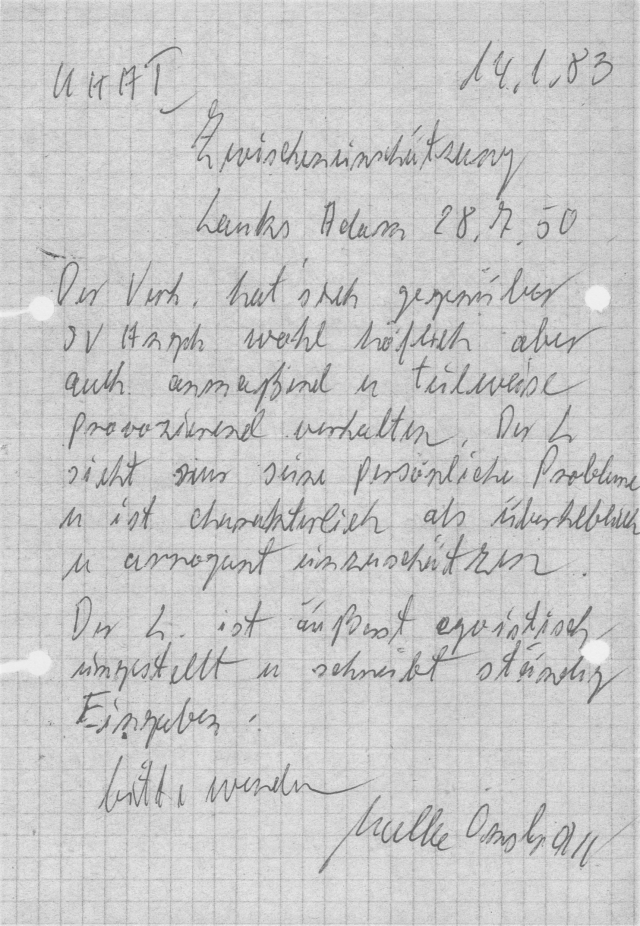 UHAT 14.1.83
Zwischeneinschätzung
Lauks Adam 28.7.50
Der Verh. hat sich gegenüber
SV Angeh wohl höflich aber
auch anmaßend u teilweise
provozierend verhalten. Der L
sieht nur seine persönliche Probleme
u ist charakterlich als überheblich
u arrogant einzuschätzen.
Der L. ist äußerst egoistisch
eingestellt u schreibt ständig
Eingaben.
bitte wenden